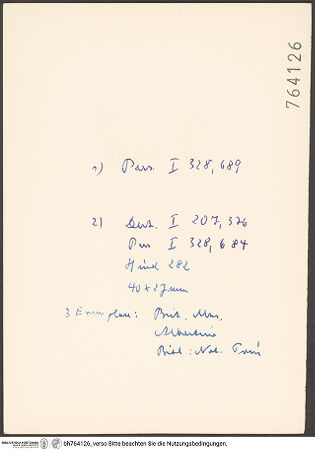 764126
1) Pass. I 328, 689
2) Dut. I 207, 326
Pass I 328, 684
Hind 282
40 x 27 mm
3 Exemplare: Brit. Mus.
Albertina
Bibl. Nat. Paris
bh764126_verso Bitte beachten Sie die Nutzungsbedingungen.